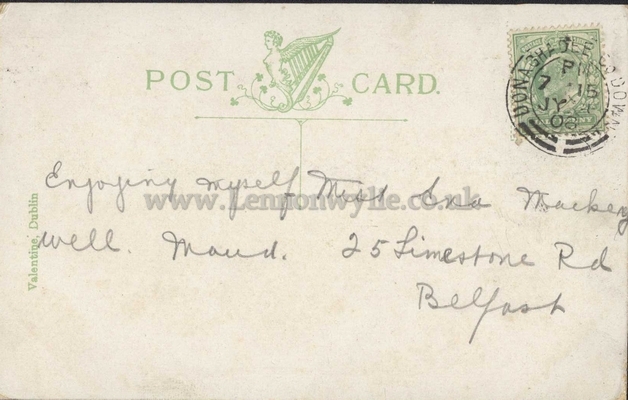 POST CARD.
DONAGHADEE CO DOWN
PM
7 15
JY
06
Enjoying myself
well. Maud.
Miss Ena Mackey
25 Limestone Rd
Belfast
Valentine, Dublin
www.Lennonwylie.co.uk